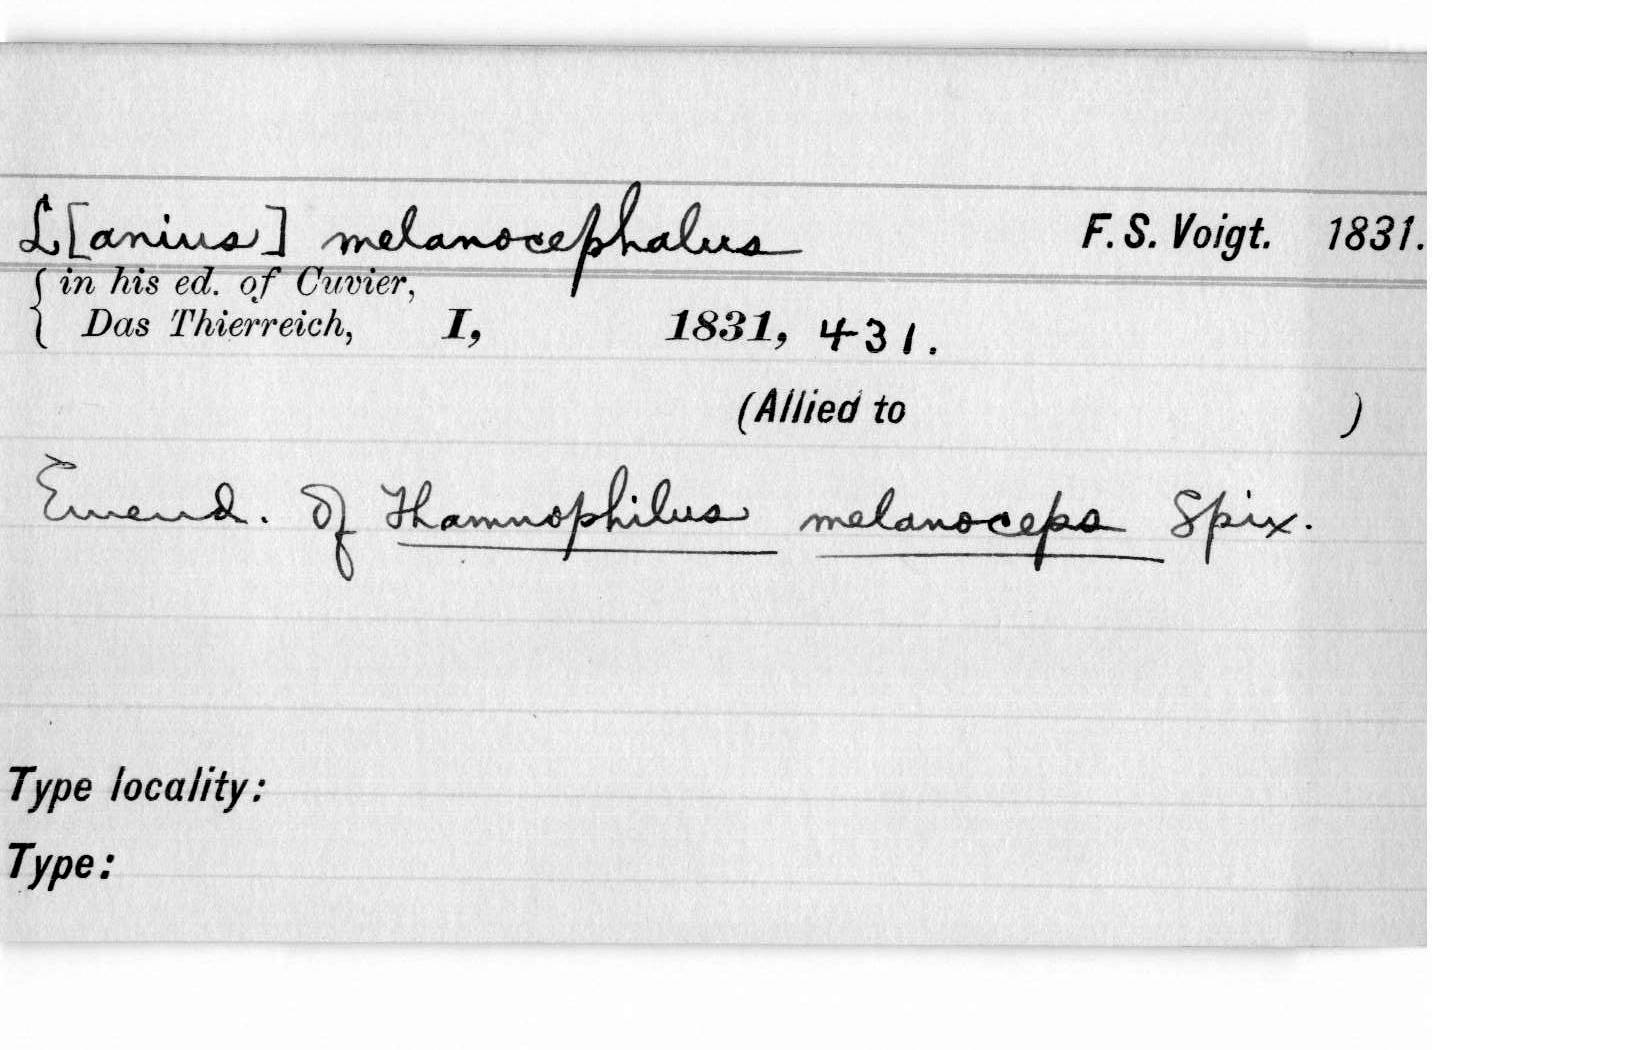 L[anius] melanocephalus F. S. Voigt. 1831.
{ in his ed. of Cuvier,
Das Thierreich, I, 1831, 431.
(Allied to )
Emend. of Thamnophilus melanoceps Spix.
Type locality:
Type: